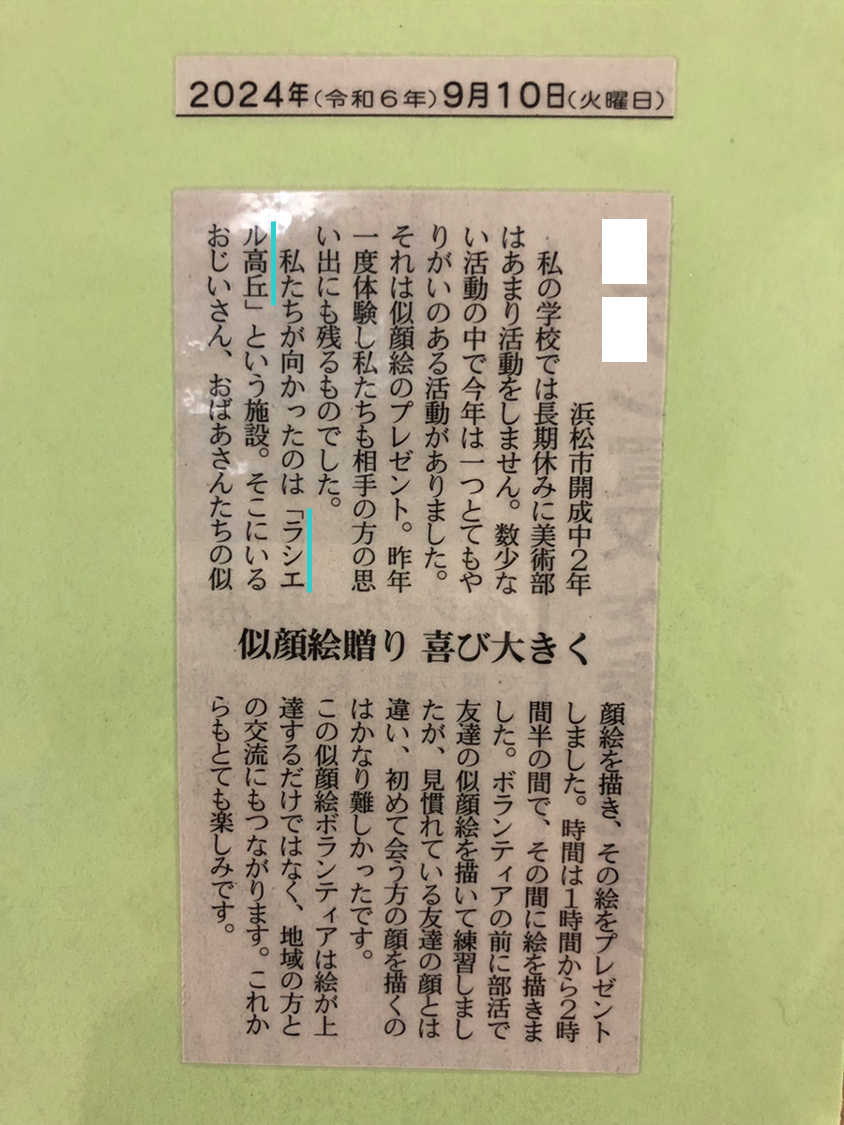 2024年(令和6年)9月10日(火曜日)
浜松市開成中2年
私の学校では長期休みに美術部
はあまり活動をしません。数少な
い活動の中で今年は一つとてもや
りがいのある活動がありました。
それは似顔絵のプレゼント。昨年
一度体験し私たちも相手の方の思
い出にも残るものでした。
私たちが向かったのは「ラシエ
ル高丘」という施設。そこにいる
おじいさん、おばあさんたちの似
似顔絵贈り 喜び大きく
顔絵を描き、その絵をプレゼント
しました。時間は1時間から2時
間半の間で、その間に絵を描きま
した。ボランティアの前に部活で
友達の似顔絵を描いて練習しまし
たが、見慣れている友達の顔とは
違い、初めて会う方の顔を描くの
はかなり難しかったです。
この似顔絵ボランティアは絵が上
達するだけではなく、地域の方と
の交流にもつながります。これか
らもとても楽しみです。